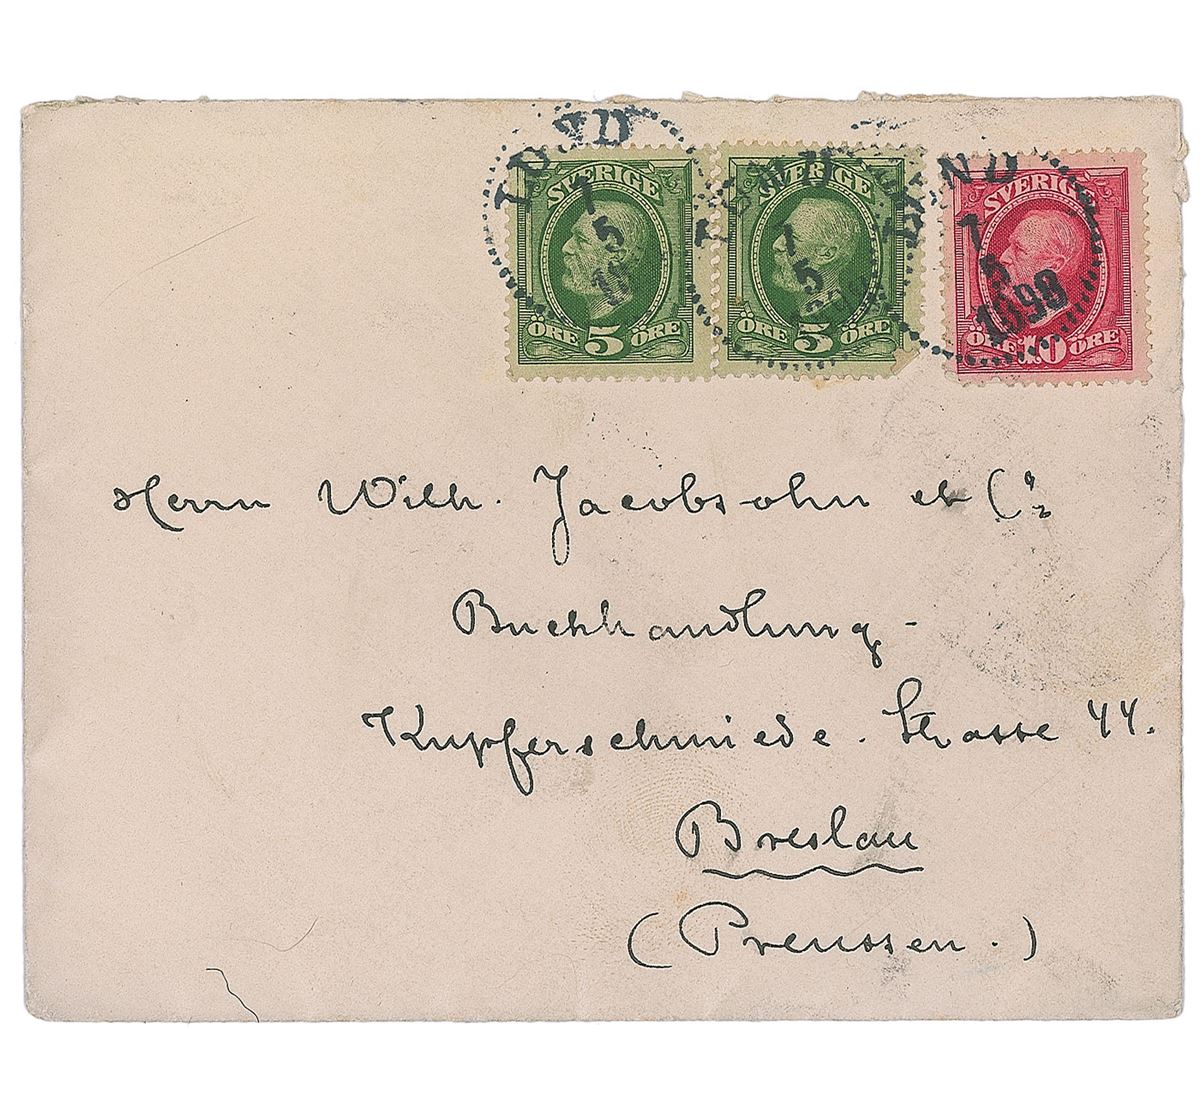 LUND LUND LUND
SVERIGE SVERIGE SVERIGE
7 7 7
5 5 5
18 1898 1898
ÖRE 5 ÖRE ÖRE 5 ÖRE ÖRE 10 ÖRE
Herrn Wilh. Jacobsohn et Co
Buchhandlung -
Kupferschmiede. Strasse 44.
Breslau
(Preussen.)